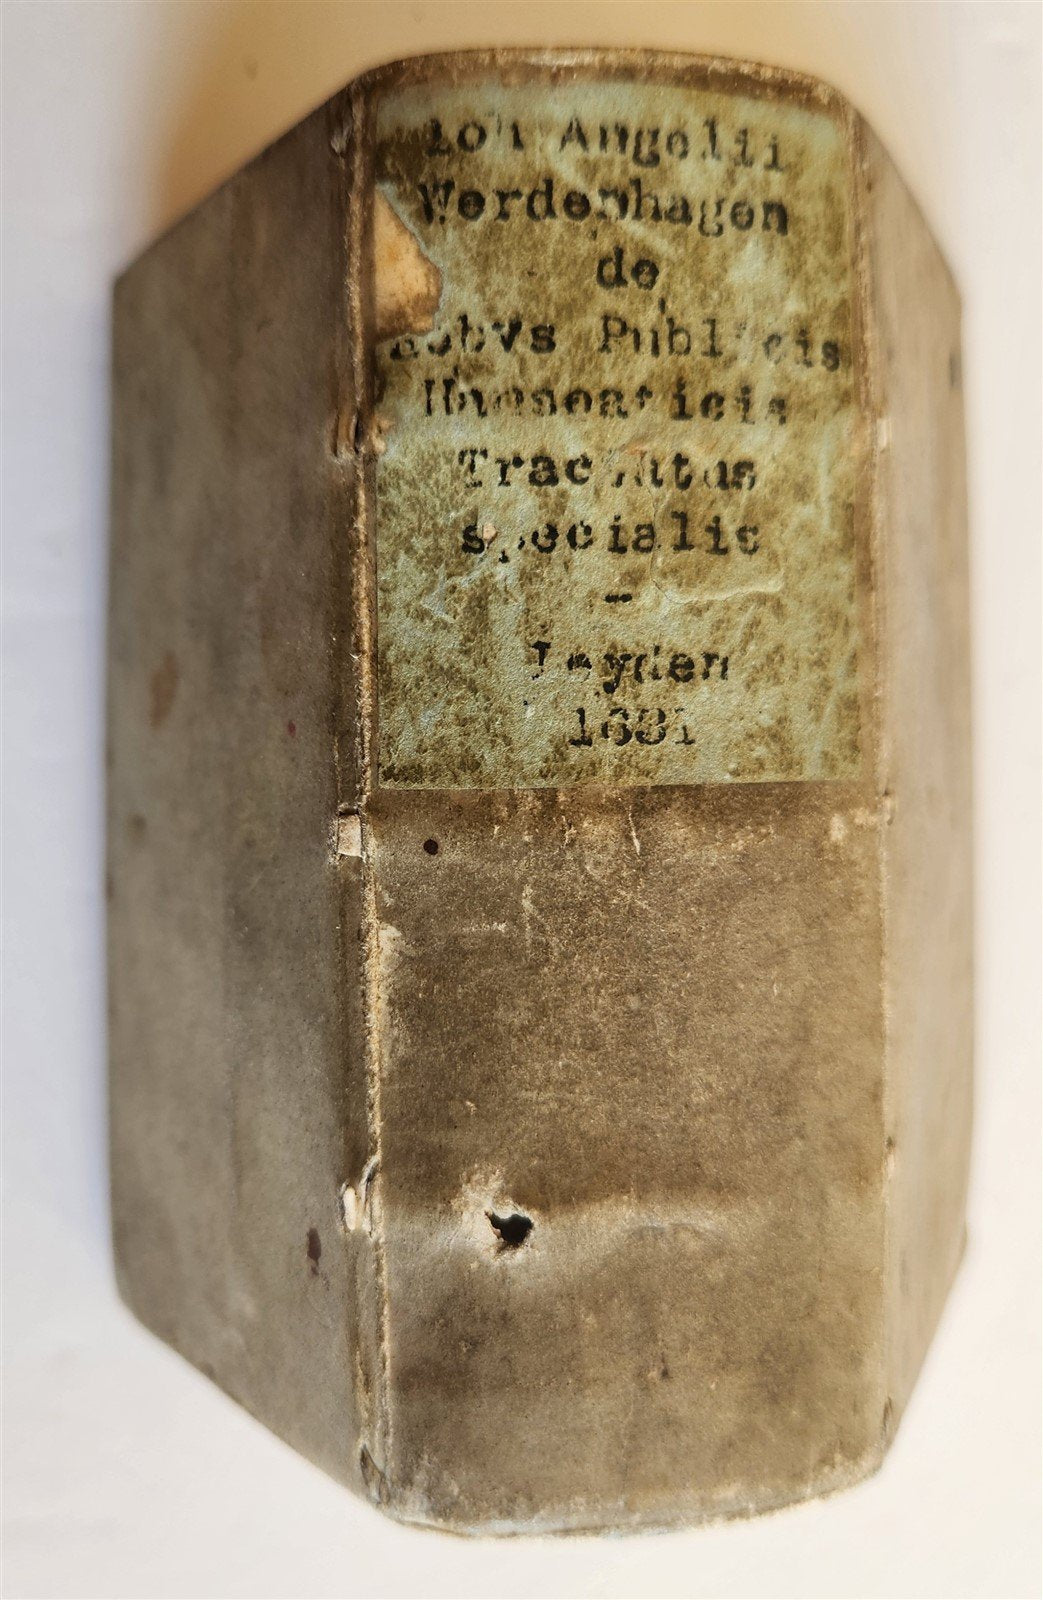 Ioh Angelii
Werdenhagen
de
RebVs Publicis
Hanseaticis
Tractatus
specialis
-
Leyden
1631